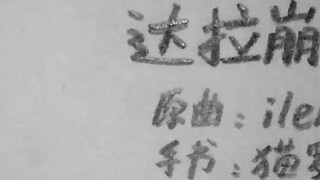 达拉崩
原曲：ile
手书：猫